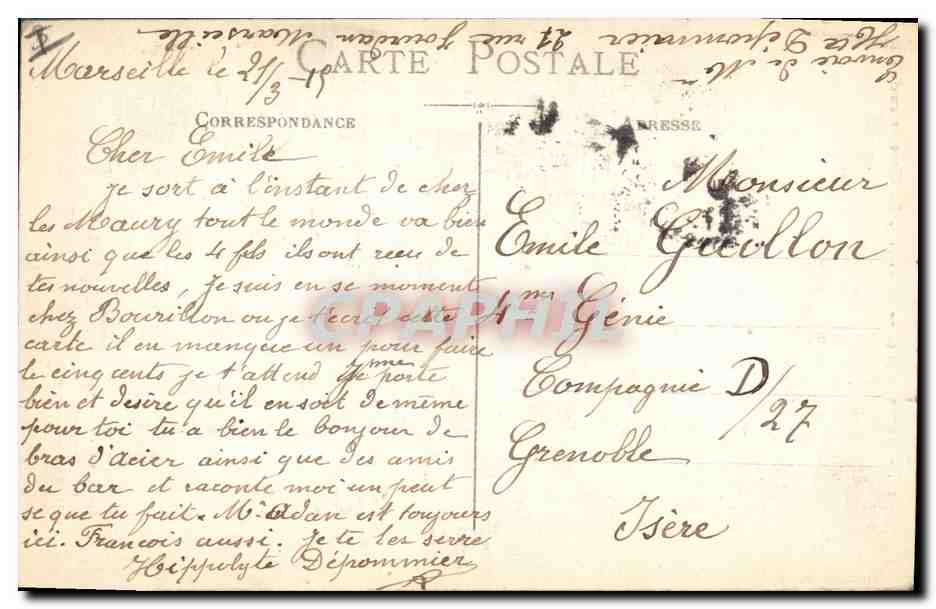 Envoie de Mr
Hte Dépommier
21 rue Jourdan Marseille
CARTE POSTALE
Marseille le 21/3 - 15
CORRESPONDANCE
Cher Emile
Je sort à l'instant de cher
les Maury tout le monde va bien
ainsi que les 4 fils ils ont recu de
tes nouvelles, Je suis en se moment
chez Bourillon ou je t'écris cette
carte il en manque un pour faire
le cinq cents je t'attend Je me porte
bien et desire qu'il en soit de même
pour toi tu a bien le bonjour de
bras d'acier ainsi que des amis
du bar et raconte moi un peut
se que tu fait. Mr Adan est toujours
ici. Francois aussi. Je te les serre
Hippolyte Dépommier
ADRESSE
Monsieur
Emile Guollon
4me Génie
Compagnie D/27
Grenoble
Isère
CPAPHIL